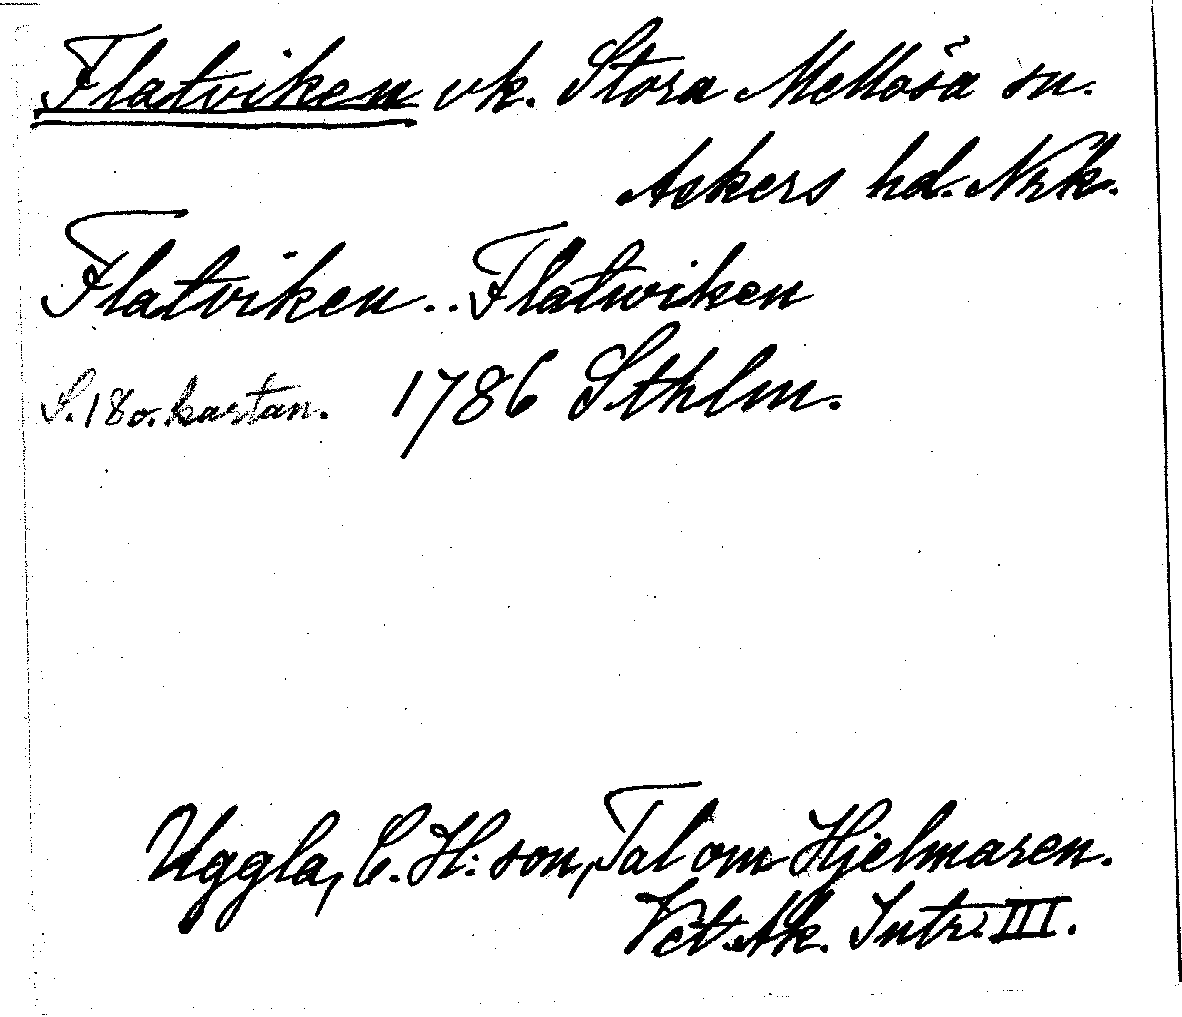 Flatviken vk. Stora Mellösa sn.
Askers hd. Nrk.
Flatviken .. Flatwiken
S. 180. kartan. 1786 Sthlm.
Uggla, C. H:son, Tal om Hjelmaren.
Vet. Ak. Intr. III.